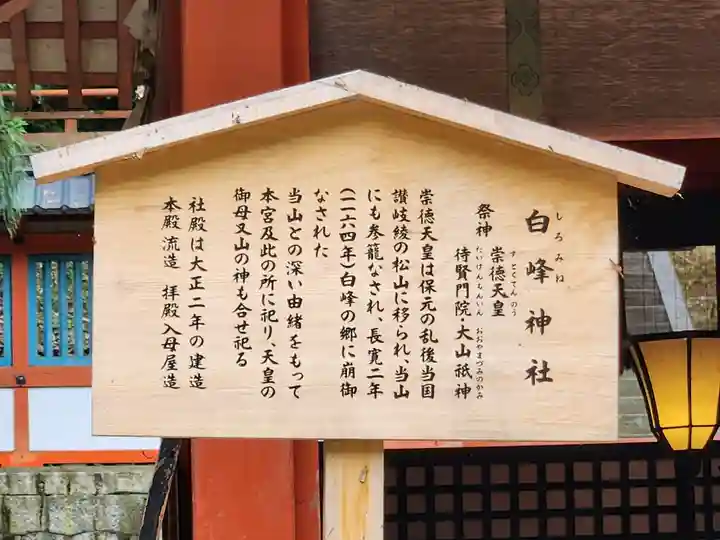 白峰神社
しろみね
祭神 崇徳天皇
すとくてんのう
待賢門院・大山祇神
たいけんもんいん おおやまづみのかみ
崇徳天皇は保元の乱後当国
讃岐綾の松山に移られ、当山
にも参籠なされ、長寛二年
(一一六四年)白峰の郷に崩御
なされた
当山との深い由緒をもって
本宮及此の所に祀り、天皇の
御母又山の神も合せ祀る
社殿は大正二年の建造
本殿流造 拝殿入母屋造